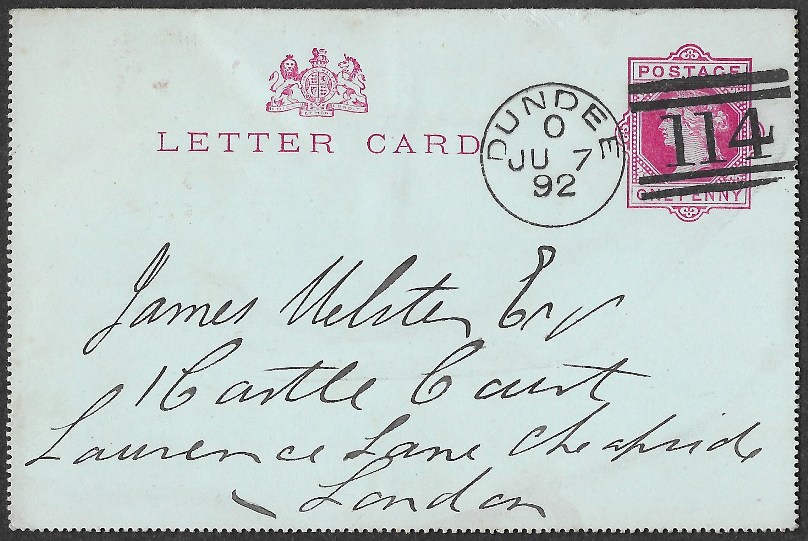 POSTAGE
LETTER CARD
DUNDEE
O
JU 7
92
114
ONE PENNY
James Webster Esq
1 Castle Court
Laurence Lane Cheapside
London